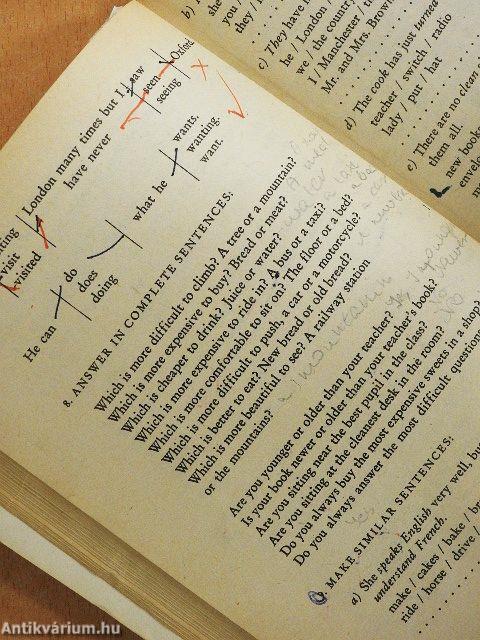 London many times but I saw Oxford
have never seen
seeing
visit
visited
do wants.
He can does what he wanting.
doing want.
8. ANSWER IN COMPLETE SENTENCES:
Which is more difficult to climb? A tree or a mountain?
Which is more expensive to buy? Bread or meat?
Which is cheaper to drink? Juice or water?
Which is more expensive to ride in? A bus or a taxi?
Which is more comfortable to sit on? The floor or a bed?
Which is more difficult to push a car or a motorcycle?
Which is better to eat? New bread or old bread?
Which is more beautiful to see? A railway station
or the mountains?
a mountain
Are you younger or older than your teacher?
Is your book newer or older than your teacher's book?
Are you sitting near the best pupil in the class?
Are you sitting at the cleanest desk in the room?
Do you always buy the most expensive sweets in a shop?
Do you always answer the most difficult
yes
MAKE SIMILAR SENTENCES:
a) She speaks English very well,
understand French.
make / cakes / bake /
ride / horse / drive /
b)
they /
c) They have
he / London /
we / the country
I / Manchester /
Mr. and Mrs. Brown
d) The cook has just turned
teacher / switch / radio
lady / put / hat
e) There are no clean
them all.
new books
Antikvárium.hu